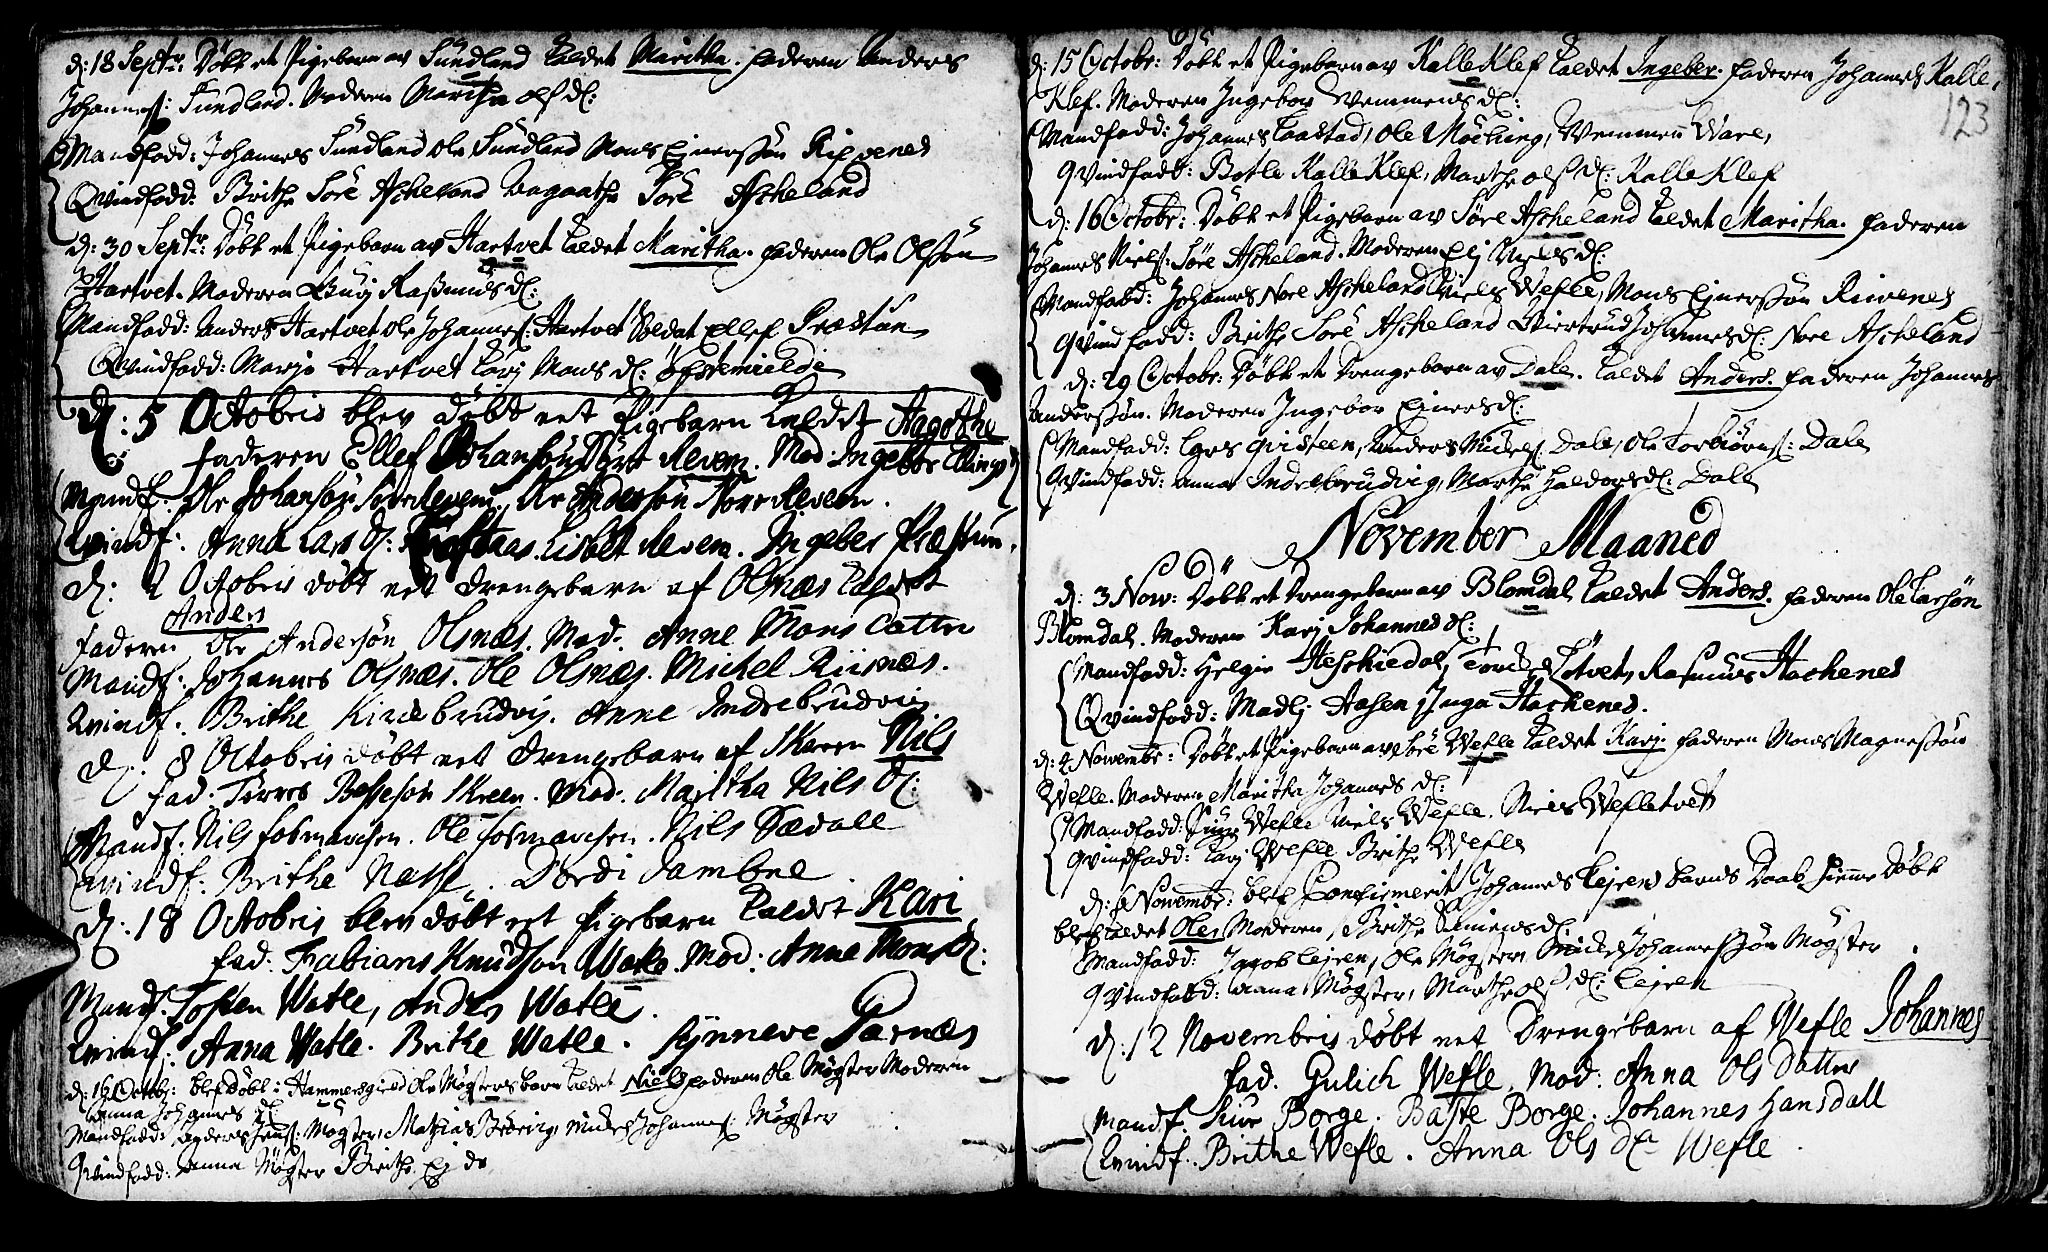 d: 18 Septr: Döbt et Pigebarn av Sundland kaldet Maritha. faderen Anders
Johannes: Sundland. Moderen Maritha ols d:
Mandfadd: Johannes Sundland Ole Sundland Mons Einersøn
Qvindfadd: Brithe Söre Ascheland Aagaathe Söre Ascheland
d: 30 Septr: Döbt et Pigebarn av Hartvet kaldet Maritha. faderen Ole Olssøn
Hartvet. Moderen Guri Rasmus d:
Mandfadd: Anders Hartvet Ole Johannes: Hartvet Soldat Ellef Præstun
Qvindfadd: Marjo Hartvet Kari Mons d:
d: 5 Octobris blev döbt eet Pigebarn kaldet Aagothe
faderen Ellef Johansøn Revem. Mod: Ingebor
Mandf: Ole Johansøn Revem. Ole Andersøn Nore Revem.
Kvindf: Anna Lars d: Lisbet Revem. Ingeber Præstun.
d: 2 Octobris döbt eet drengebarn af Olsnæs kaldet
Anders
faderen Ole Andersøn Olsnæs. Mod: Anne Mons datter
Mandf: Johannes Olsnæs. Ole Olsnæs. Michel Riisnæs.
Kvindf: Brithe Kirchebrudvig. Anne Indrebrudvig
d: 8 Octobris döbt eet drengebarn af Skaren Nils
fad: Torres Bessesøn Skreen. Mod: Maritha Nils d:
Mandf: Nils fosmarchsen. Ole fosmarchsen. Nils Sævall
Kvindf: Brithe Næsse. Dordi Sambnæ
d: 18 Octobris blev döbt eet Pigebarn kaldet Kari
fad: Fabians Knudsøn Watle. Mod: Anne Mons d:
Mandf: Tosten Watle, Anders Watle.
Kvindf: Anna Watle. Brithe Watle. Synneve Garnæs
d: 16 Octobr: blef döbt i Hammersgierd Ole Møgsters barn kaldet Niels faderen Ole Møgster Moderen
Anna Johannes d:
Mandfadd: Anders Jens: Møgster, Mathias Bröring, Michel Johannes: Møgster
Qvindfadd: Anna Møgster Brithe Ej do
d: 15 Octobr: Döbt et Pigebarn av KalleKlef kaldet Ingeber. faderen Johannes Kalle,
123
Klef. Moderen Ingebor Wemmens d:
Mandfadd: Johannes Ole Möching, Wemmen Ware,
Qvindfadd: Botle KalleKlef, Marthe ols d: KalleKlef
d: 16 Octobr: Döbt et Pigebarn av Söre Ascheland kaldet Maritha. faderen
Johannes Niels: Söre Ascheland. Moderen Eli Niels d:
Mandfadd: Johannes Nore Ascheland Niels Wefle, Mons Einersøn Rivenes
Qvindfadd: Brithe Söre Ascheland Giertrud Johannes d: Nore Ascheland
d: 29 Octobr: Döbt et Drengebarn av Dale. kaldet Anders. faderen Johannes
Anderssøn. Moderen Ingebor Einers d:
Mandfadd: Lars Qvisteen, Anders Michels: Dale, Ole Torbiörns: Dale
Qvindfadd: Anna Indrebrudvig, Marthe Haldors d: Dale
November Maaned
d: 3 Nov: Döbt et Drengebarn av Blomdal kaldet Anders. faderen Ole Larssøn
Blomdal. Moderen Kari Johannes d:
Mandfadd: Helgie Haschiedal, Tore Rasmus Hachenes
Qvindfadd: Madli Aasen Inga Hachenes.
d: 4 Novembr: Döbt et Pigebarn av Söre Wefle kaldet Kari faderen Mons Magnessøn
Wefle. Moderen Maritha Johannes d:
Mandfadd: Siur Wefle Niels Wefle. Niels Wefletvet
Qvindfadd: Kari Wefle Brithe Wefle
d: 6 Novembr: blef Confirmerit Johannes Lejrens barns Daab hieme döbt
blef kaldet Ole Moderen Brithe Simens d:
Mandfadd: Jacob Lejren, Ole Møgster, Michel Johannessøn Møgster
Qvindfadd: Anna Møgster, Marthe ols d: Lejren
d: 12 Novembris döbt eet Drengebarn af Wefle Johannes
fad. Gulich Wefle. Mod: Anna Ols datter
Mandf. Siur Borge. Baste Borge. Johannes Hansdall
Kvindf. Brithe Wefle. Anna Ols dr Wefle